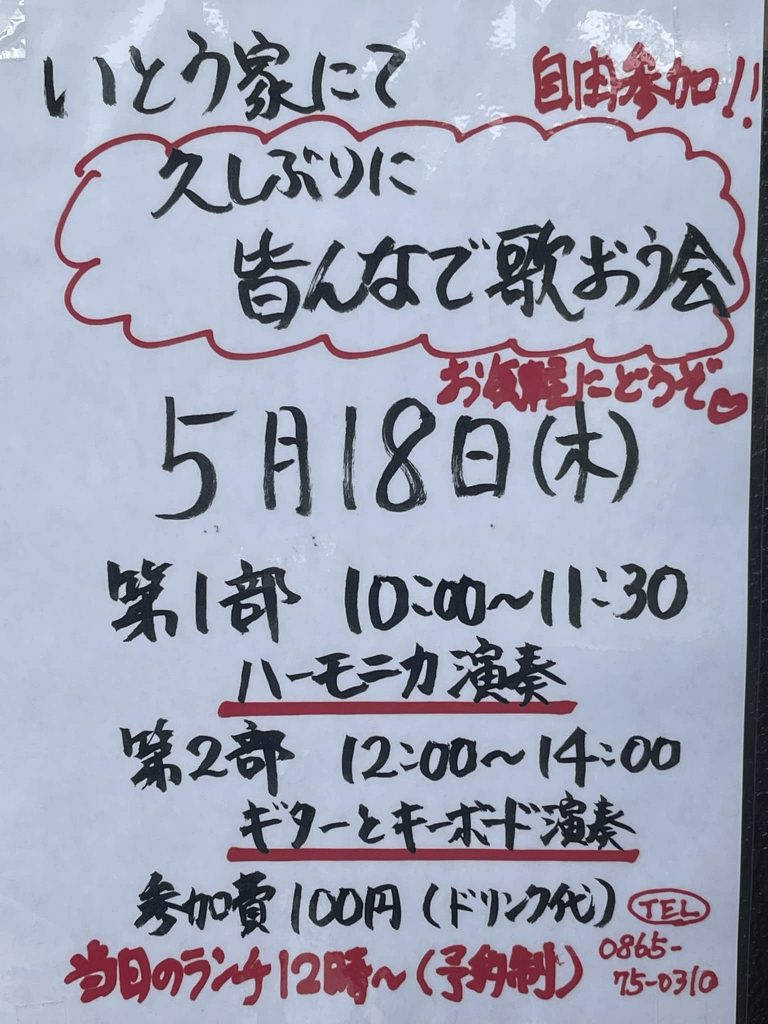 いとう家にて
自由参加!!
久しぶりに
皆んなで歌おう会
お気軽にどうぞ
5月18日(木)
第1部 10:00~11:30
ハーモニカ演奏
第2部 12:00~14:00
ギターとキーボード演奏
参加費100円(ドリンク代)
TEL
0865-
75-0310
当日のランチ12時~(予約制)